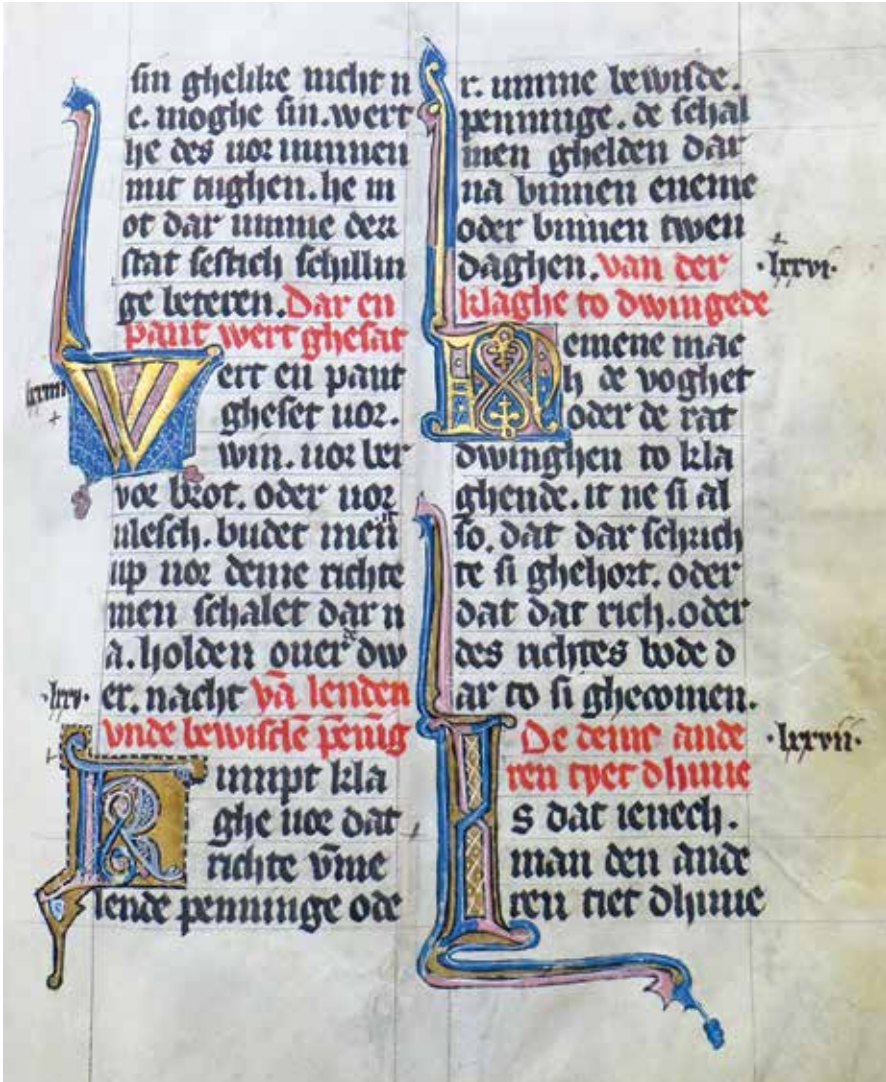 sin ghelike nicht n
e. moghe sin. wert
he des uor wunnen
mit tughen. he m
ot dar umme derr
stat sestich schillin
ge beteren. Dar en
pant wert ghesat
·lxxiiii·
Wert en pant
gheset uor.
win. uor ber
vor brot. oder uor
vlesch. budet men it
up uor deme richte
men schalet dar n
a. holden ouer de dw
·lxxv· er. nacht vā lenden
vnde bewisedē pēnig
Kumpt kla
ghe uor dat
richte vm̄e
lende penninge ode
r. umme bewisde.
penninge. de schal
men ghelden dar
na binnen eneme
oder binnen twen
daghen. van der ·lxxvi·
klaghe to dwingede
Nemene mac
h de voghet
oder de rat
dwinghen to kla
ghende. it ne si al
so. dat dar schrich
te si ghehort. oder
dat dat rich. oder
des richtes bode d
ar to si ghecomen.
De deme ande ·lxxvii·
ren tyet dhuue
Is dat ienech.
man den ande
ren tiet dhuue